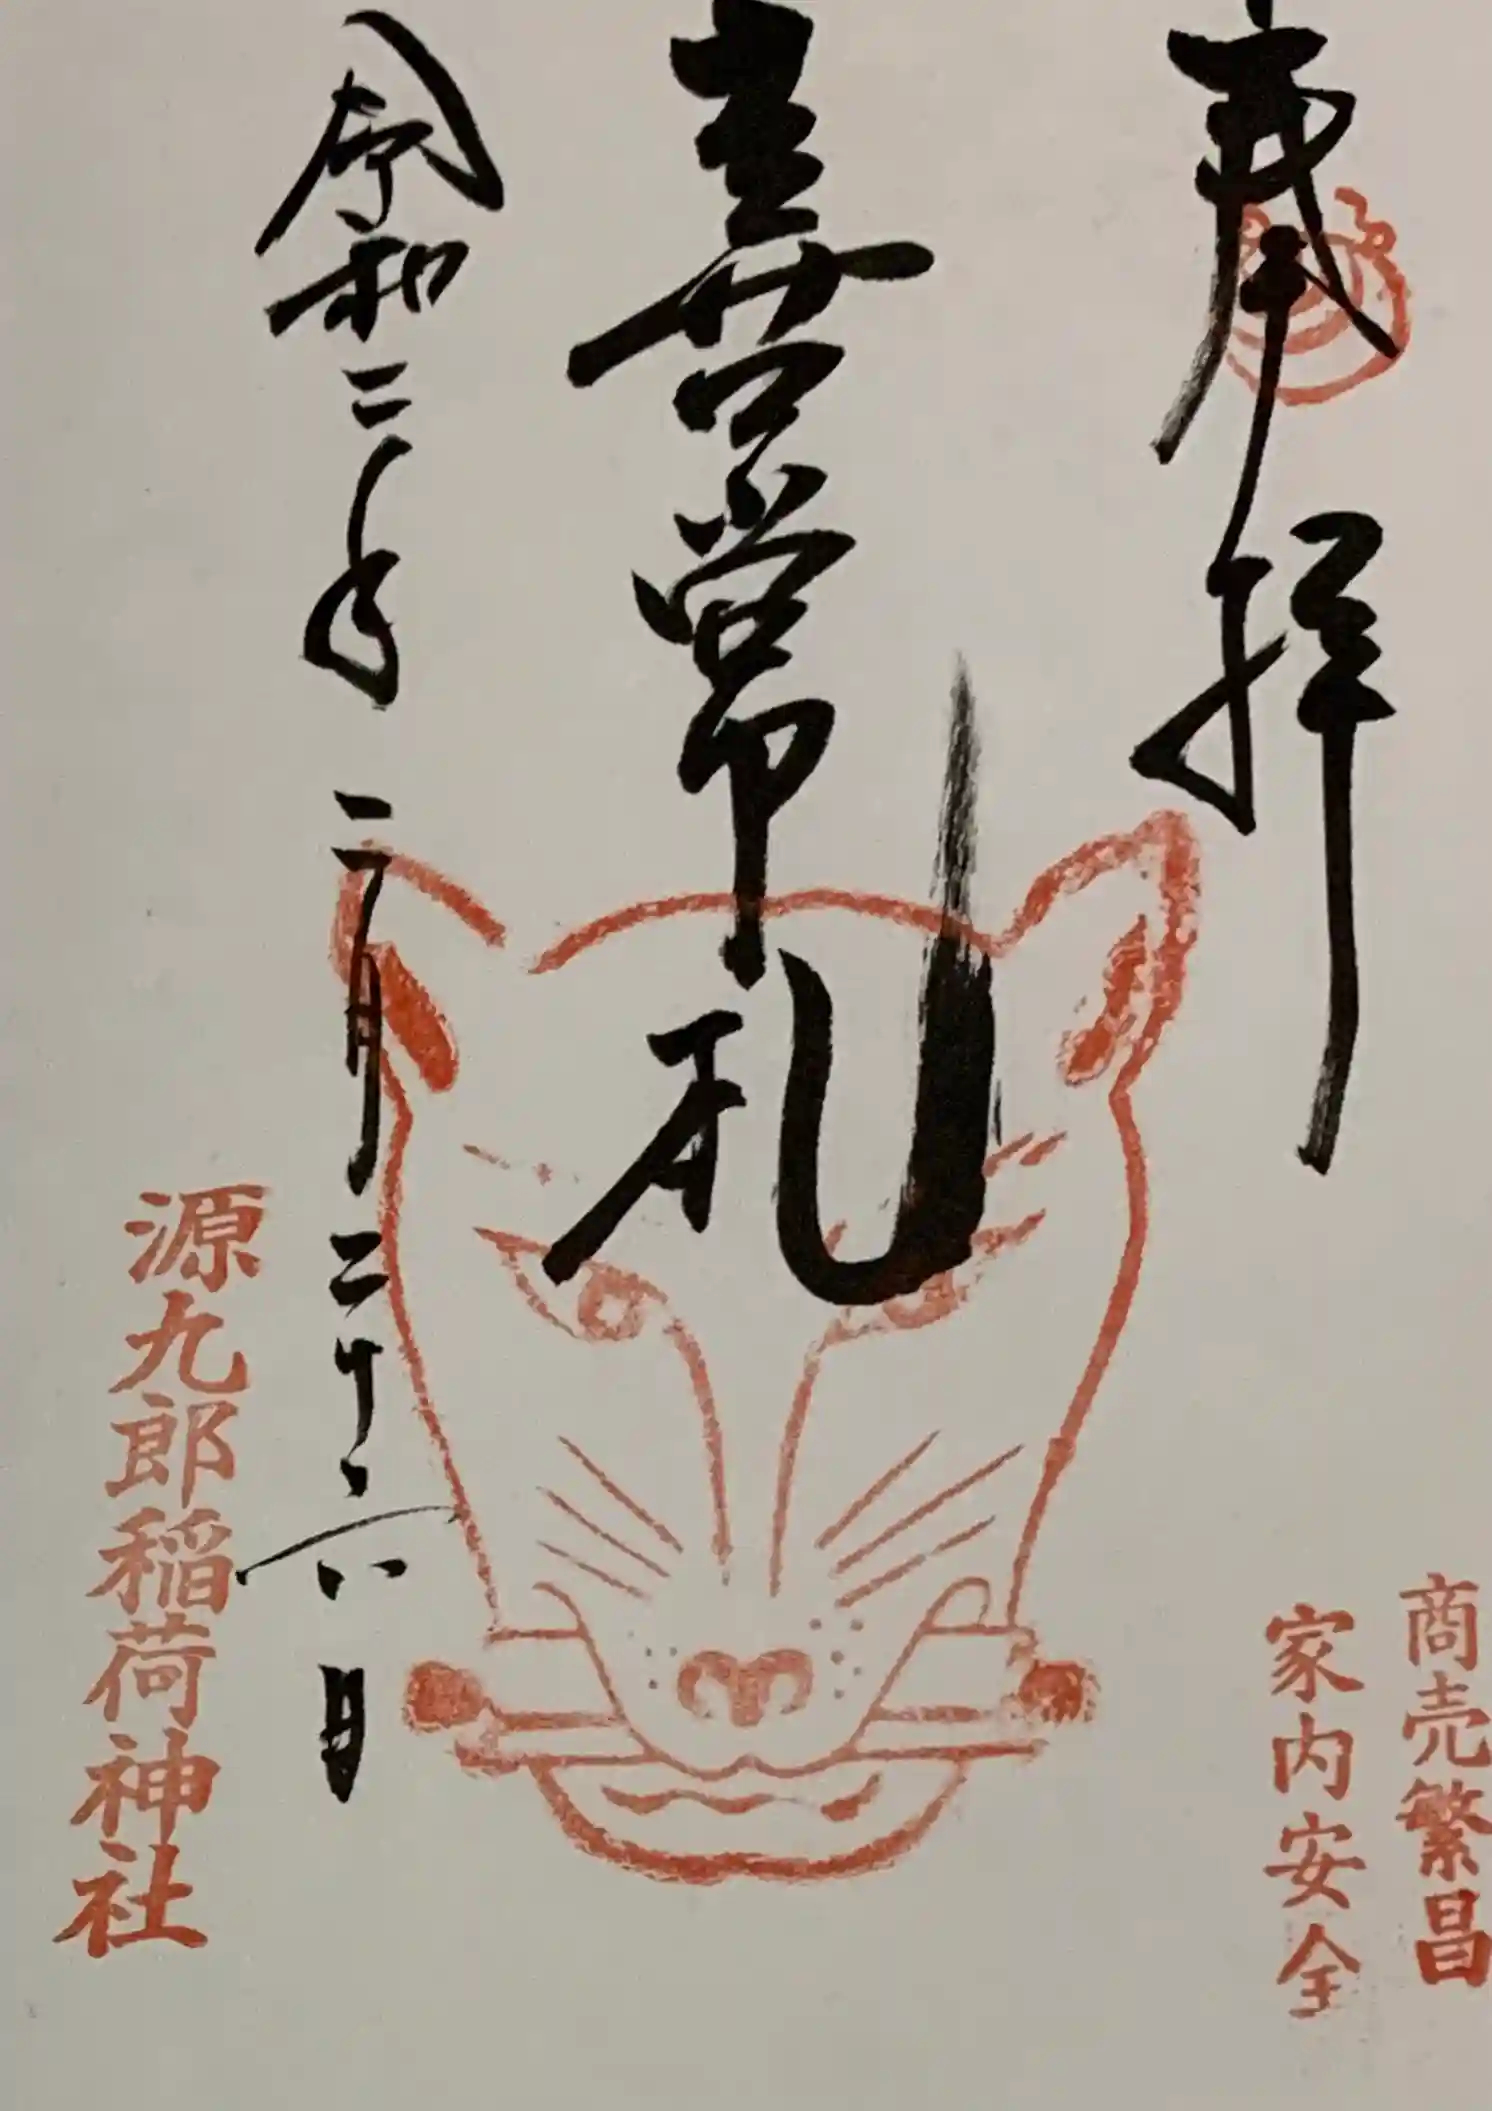 奉拝
商売繁昌
家内安全
喜常軒
令和二年二月二十六日
源九郎稲荷神社